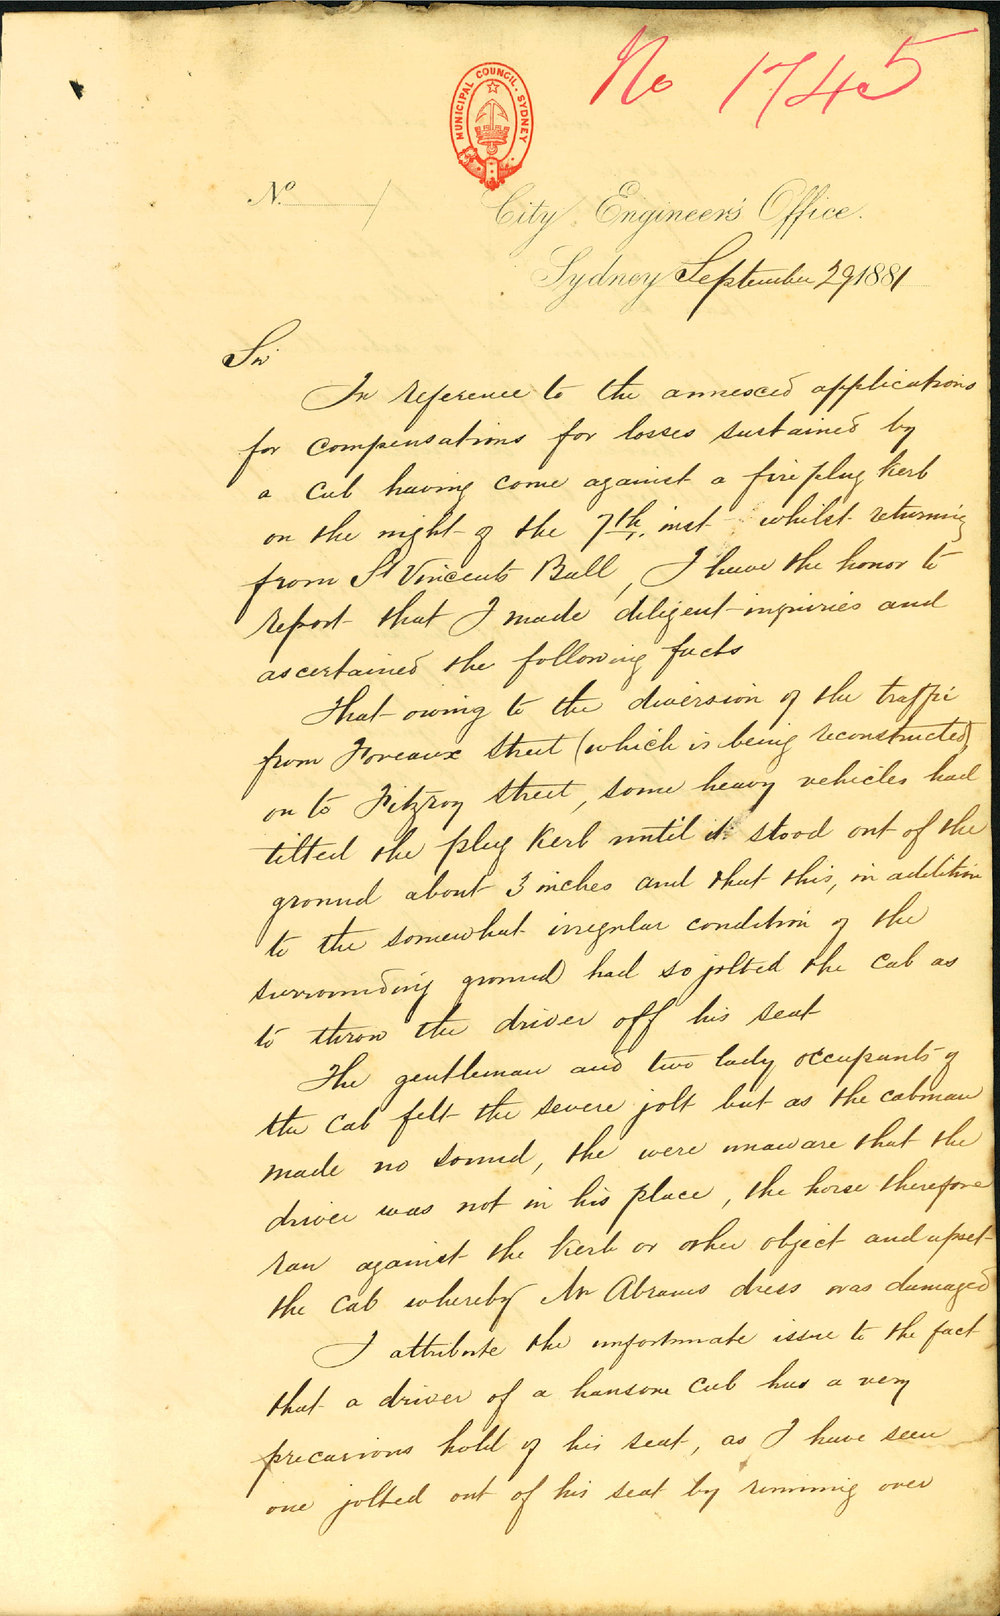 No 1745
MUNICIPAL COUNCIL. SYDNEY
No. /
City Engineer's Office.
Sydney September 29 1881
Sir
In reference to the annexed applications
for compensations for losses sustained by
a cab having come against a fireplug kerb
on the night of the 7th. inst whilst returning
from St Vincents Ball, I have the honor to
report that I made diligent inquiries and
ascertained the following facts
That owing to the diversion of the traffic
from Foveaux Street (which is being reconstructed)
on to Fitzroy Street, some heavy vehicles had
tilted the plug kerb until it stood out of the
ground about 3 inches and that this, in addition
to the somewhat irregular condition of the
surrounding ground had so jolted the cab as
to throw the driver off his seat
The gentleman and two lady occupants of
the cab felt the severe jolt but as the cabman
made no sound, the were unaware that the
driver was not in his place, the horse therefore
ran against the kerb or other object and upset
the cab whereby Mr Abrams dress was damaged
I attribute the unfortunate issue to the fact
that a driver of a hansom cab has a very
precarious hold of his seat, as I have seen
one jolted out of his seat by running over